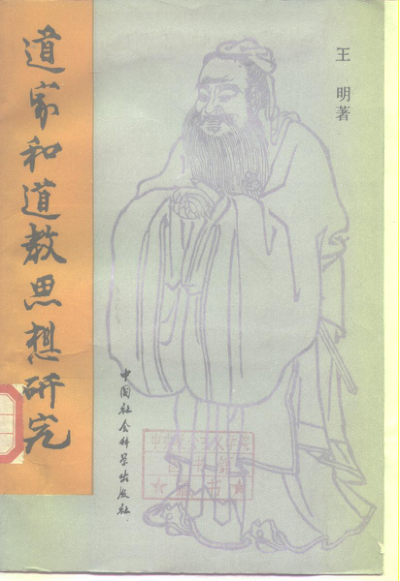 王明著
道家和道教思想研究
中国社会科学出版社